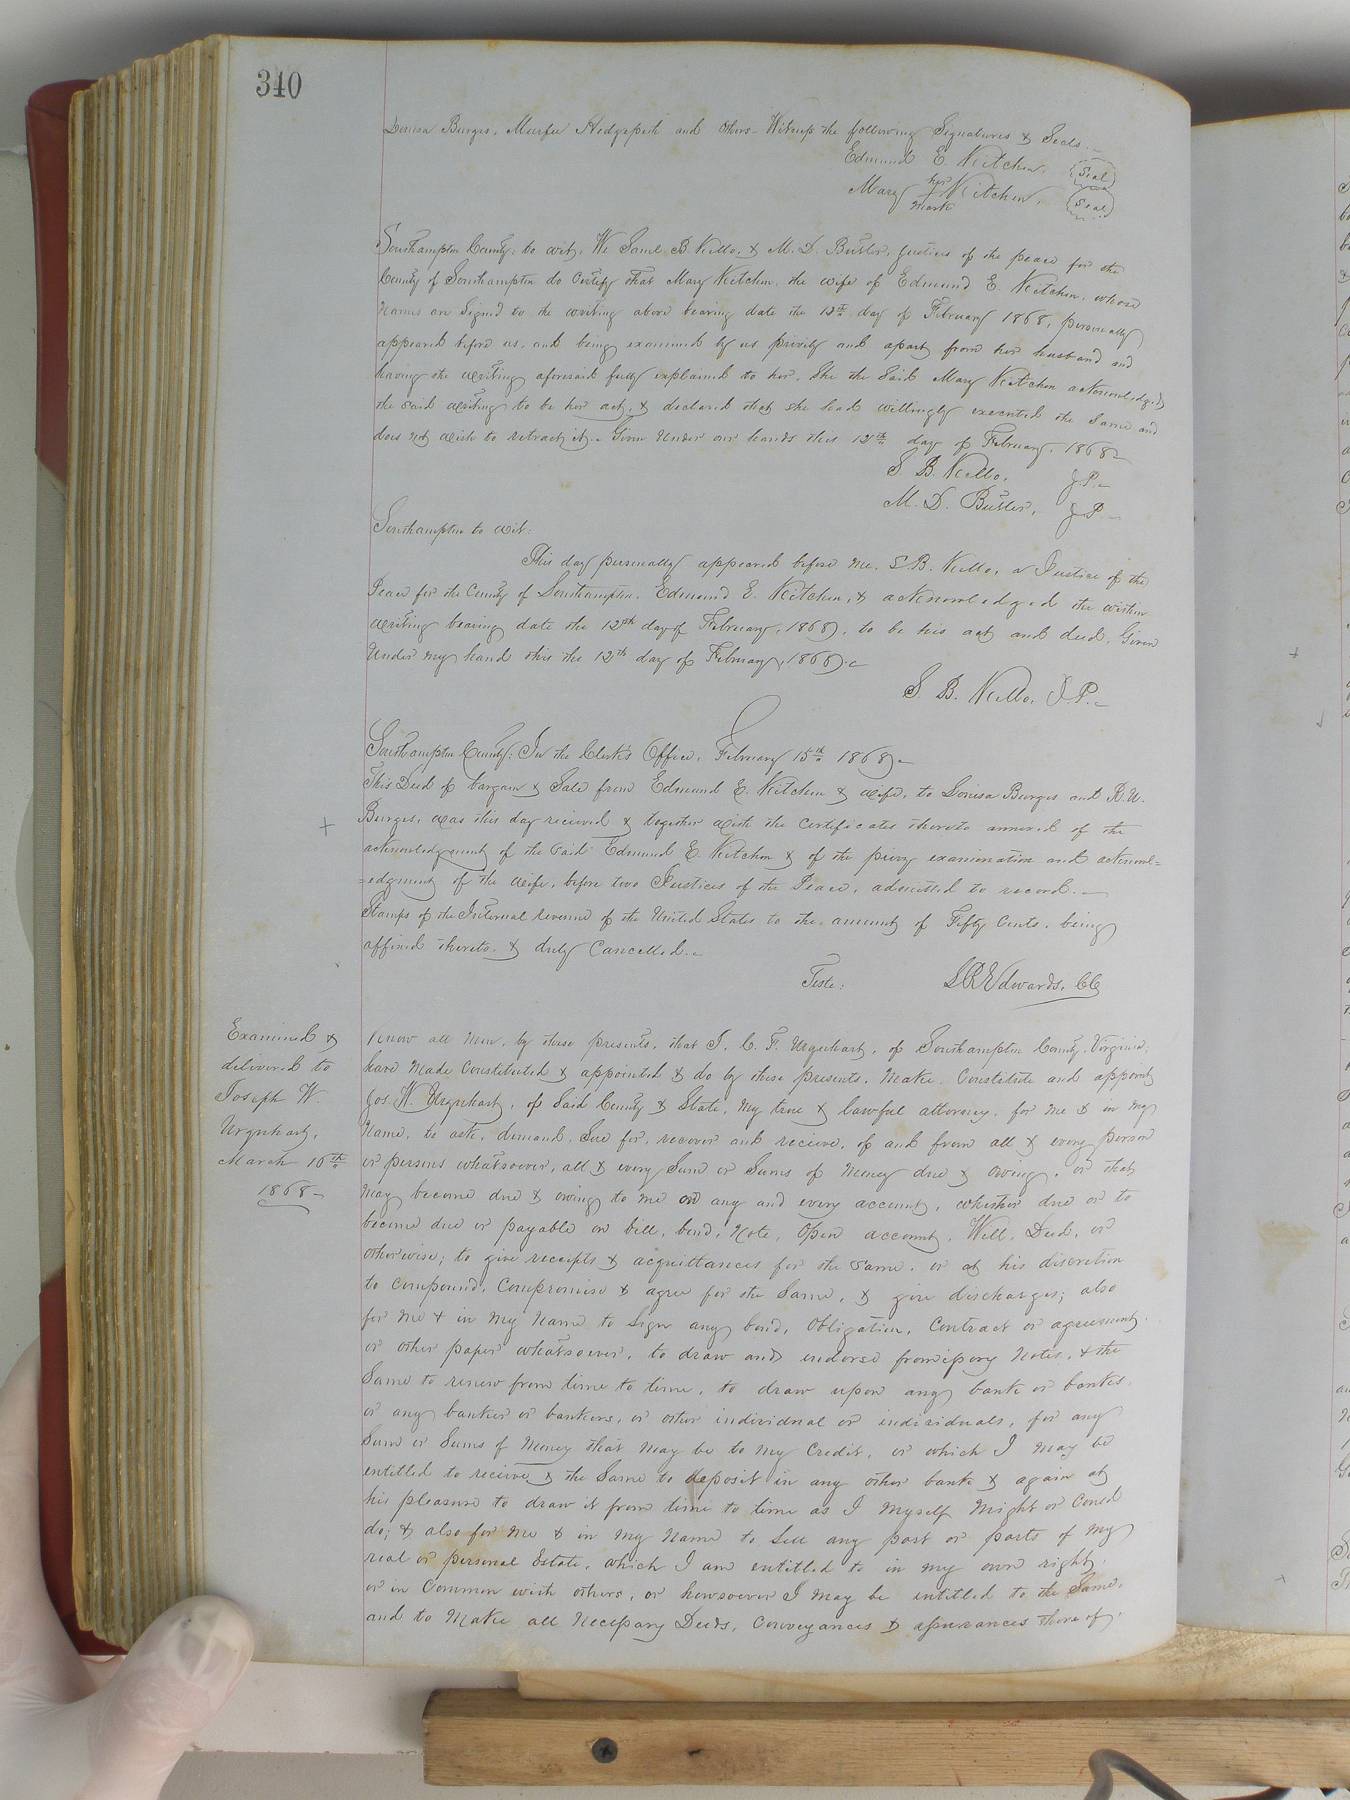 340
Louisa Burges, Murfee Hedgepeth and others - Witness the following Signatures & Seals.-
Edmund E Kitchen. (Seal)
Mary her Kitchen. (Seal)
mark
Southampton County: to wit, We Saml. B. Kello, & M. D. Butler, Justices of the peace for the
County of Southampton do Certify that Mary Kitchen, the wife of Edmund E. Kitchen, whose
names are Signed to the writing above bearing date the 12th day of February 1868, personally
appeared before us, and being examined by us privily and apart from her husband and
having the writing aforesaid fully explained to her, She the Said Mary Kitchen acknowledged
the said writing to be her act, & declared that she had willingly executed the Same and
does not wish to retract it. Given Under our hands this 12th day of February, 1868
S. B. Kello, J.P.-
M. D. Butler, J P-
Southampton to wit:
This day personally appeared before me, S. B. Kello, a Justice of the
Peace for the County of Southampton, Edmund E. Kitchen, & acknowledged the within
writing bearing date the 12th day of February, 1868, to be his act and deed, Given
Under my hand this the 12th day of February, 1868.-
S. B. Kello, J.P.-
Southampton County: In the Clerk's Office, February 15th 1868-
This Deed of bargain & Sale from Edmund E. Kitchen & wife, to Louisa Burges and R. U.
+ Burges, was this day received & together with the Certificates thereto annexed of the
acknowledgment of the Said Edmund E. Kitchen & of the privy examination and acknowl=
=edgment of the wife, before two Justices of the Peace, admitted to record.-
Stamps of the Internal revenue of the United States to the amount of Fifty Cents, being
affixed thereto, & duly Cancelled.-
Teste: L R Edwards, CC
Examined &
delivered to
Joseph W.
Urquhart,
March 16th
1868-
Know all Men, by these presents, that I, C. F. Urquhart, of Southampton County, Virginia,
have Made Constituted & appointed & do by these presents, Make, Constitute and appoint
Jos. W. Urquhart, of Said County & State, My true & lawful attorney, for me & in my
Name, to ask, demand, Sue for, recover and receive, of and from all & every person
or persons whatsoever, all & every Sum or Sums of money due & owing, or that
May become due & owing to me on any and every account, whether due or to
become due or payable on bill, bond, Note, Open account, Will, Deed, or
otherwise; to give receipts & acquittances for the Same, or at his discretion
to compound, Compromise & agree for the Same, & give discharges; also
for me & in my Name to Sign any bond, Obligation, Contract or agreement
or other paper whatsoever, to draw and endorse promissory Notes, & the
Same to renew from time to time, to draw upon any bank or banks
or any banker or bankers, or other individual or individuals, for any
Sum or Sums of Money that may be to my Credit, or which I may be
entitled to receive & the Same to deposit in any other bank & again at
his pleasure to draw it from time to time as I myself Might or Could
do; & also for Me & in my Name to Sell any part or parts of my
real or personal Estate, which I am entitled to in my own right,
or in Common with others, or howsoever I may be entitled to the Same,
and to Make all Necessary Deeds, Conveyances & assurances thereof,